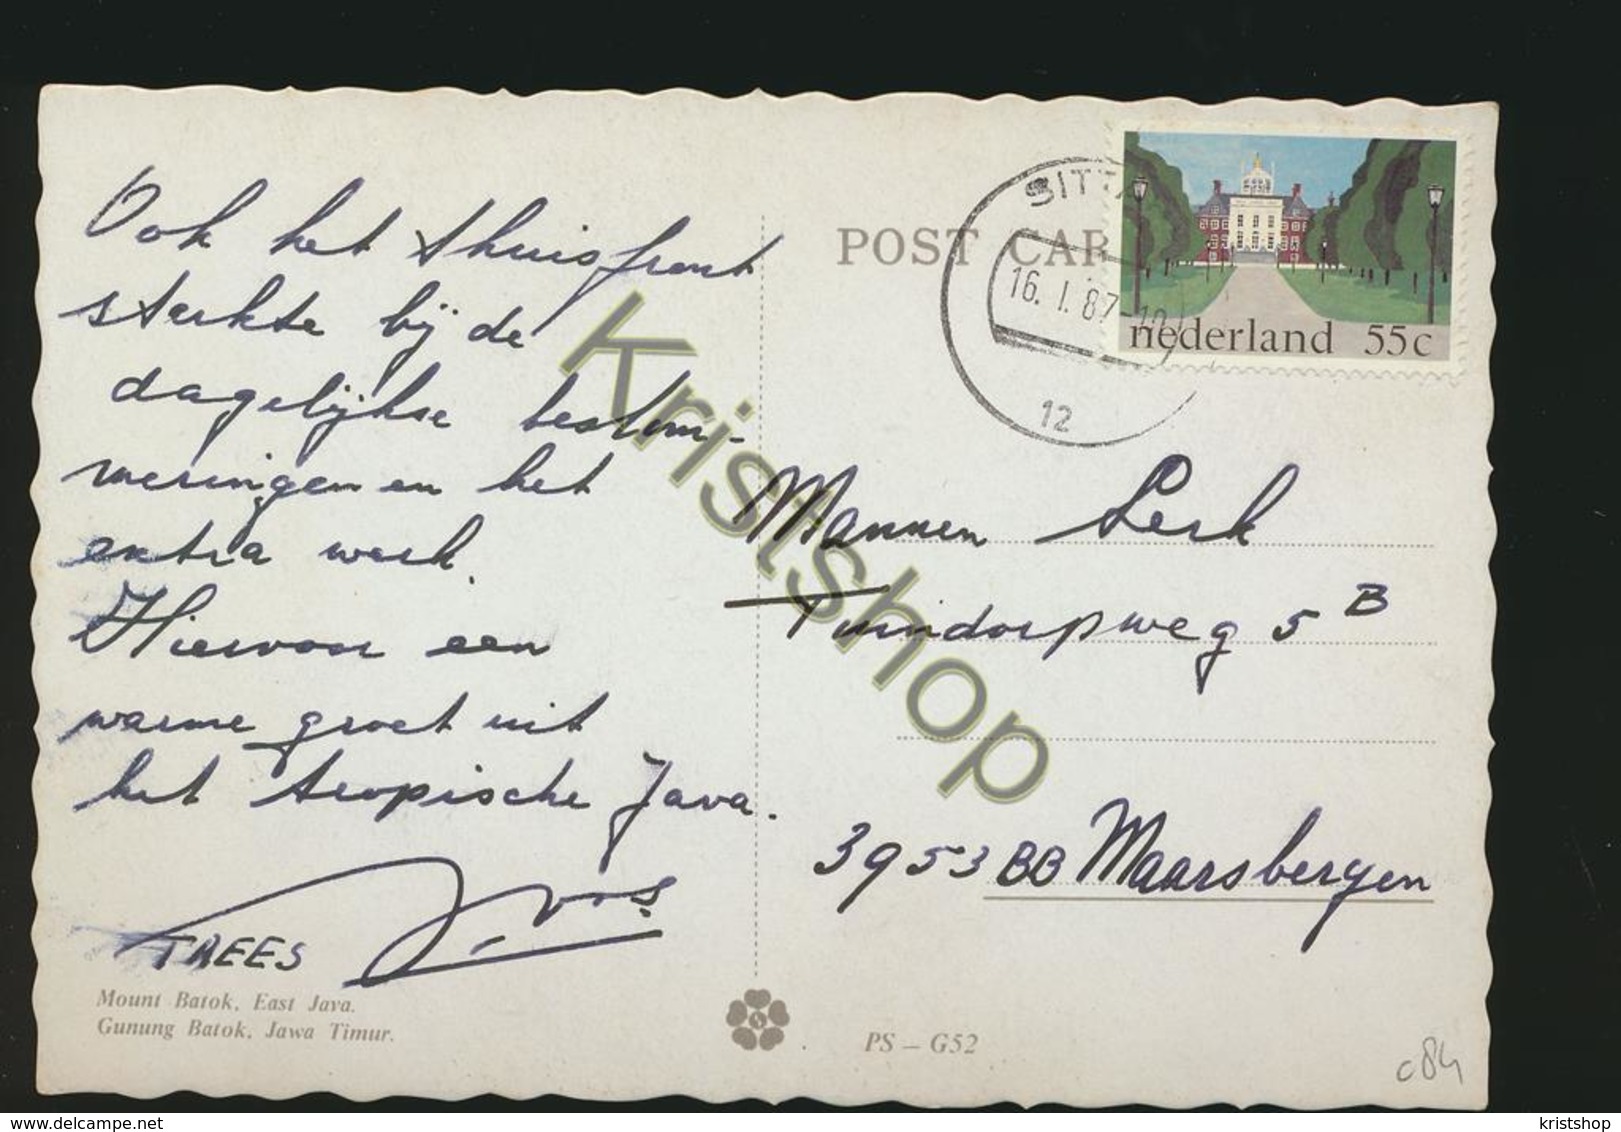 Ook het thuisfront
sterkte bij de
dagelijkse beslom-
meringen en het
extra werk.
Hiervoor een
warme groet uit
het tropische Java.
Vos.
TREES
Mount Batok, East Java.
Gunung Batok, Jawa Timur.
POST CAR
SITTA
16. I. 87-12
12
nederland 55c
Mannen Lerk
Tuindorpweg 5 B
3953 BB Maarsbergen
PS – G52
c84
Kristshop
delcampe.net
kristshop